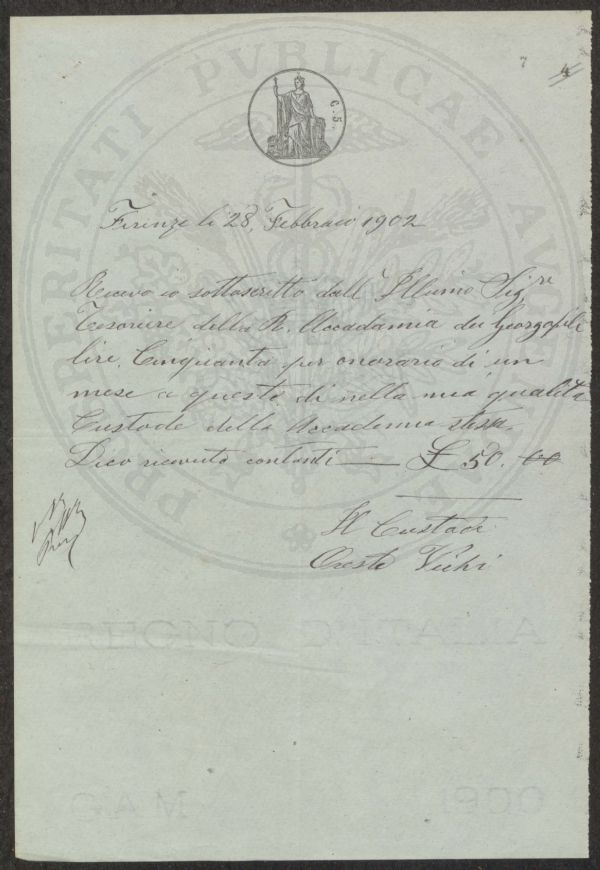 7 4
C. 5.
PROSPERITATI PVBLICAE AVGE
Firenze li 28, Febbraio 1902
Ricevo io sottoscritto dall' Illumo Sigre
Tesoriere della R. Accadamia dei Georgofili
lire, Cinquanta per onorario di un
mese a questo dì nella mia qualità
Custode della Accademia stessa.
Dico ricevuto contanti — £ 50. 00
Il Custode
Oreste Vichi